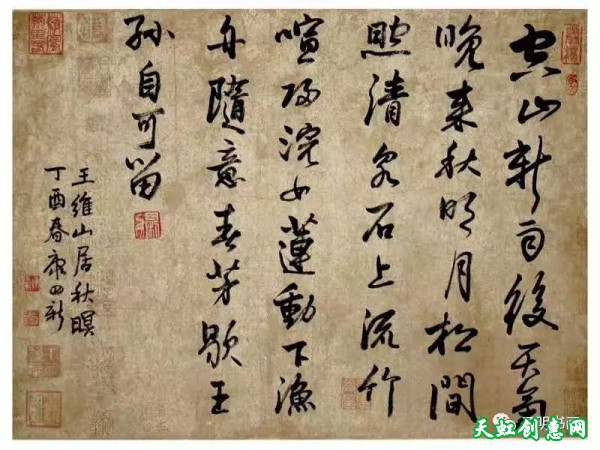 空山新雨後天氣
晚来秋明月松間
照清泉石上流竹
喧歸浣女蓮動下漁
舟隨意春芳歇王
孫自可留
王維山居秋暝
丁酉春康四新
天虹创惠网